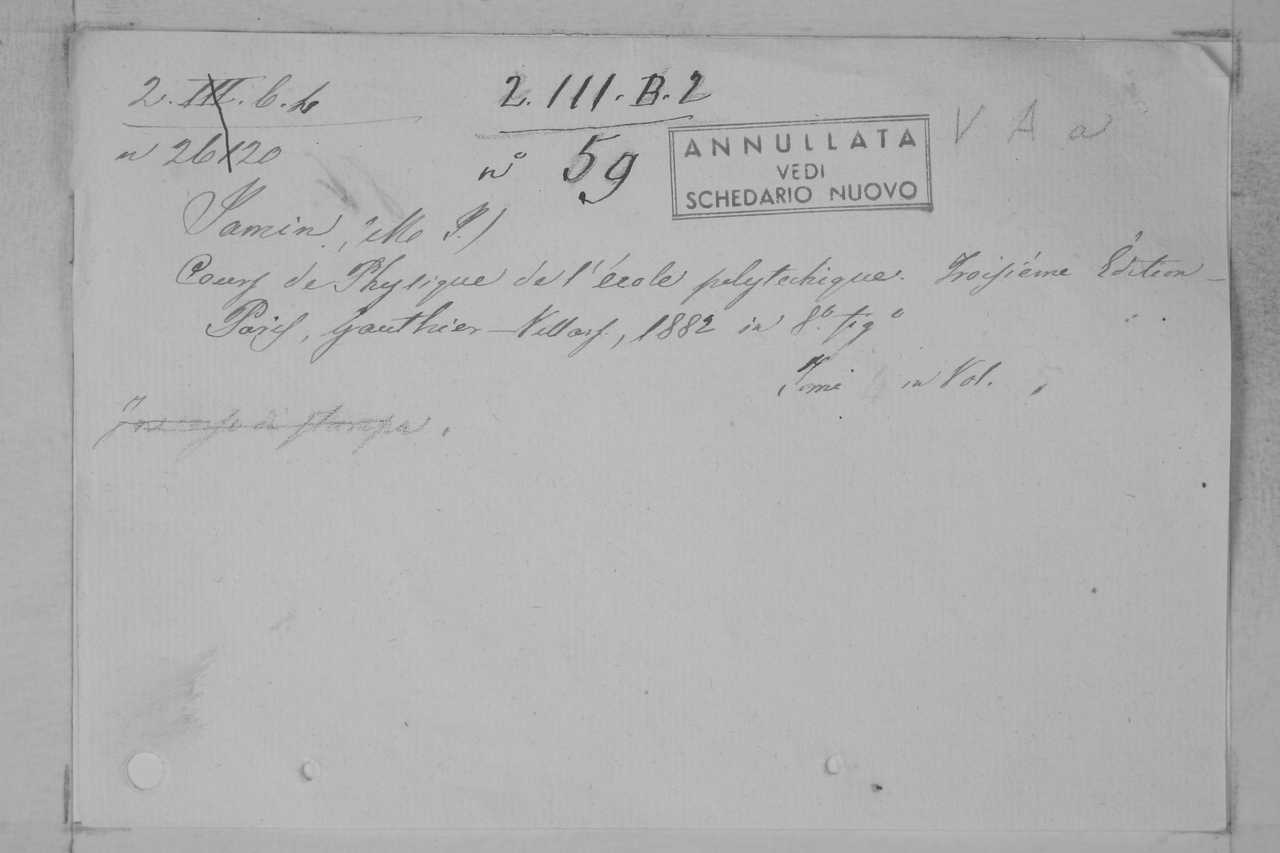 2. III. b. 2
2. III. B. 2
n 26120
nº 59
ANNULLATA
VEDI
SCHEDARIO NUOVO
V A a
Jamin, (M. J.)
Cours de Physique de l'école polytechique. Troisiéme Édition -
Paris, Gauthier-Villars, 1882 in 8.º figº
Tomi in Vol.
In corso di stampa.